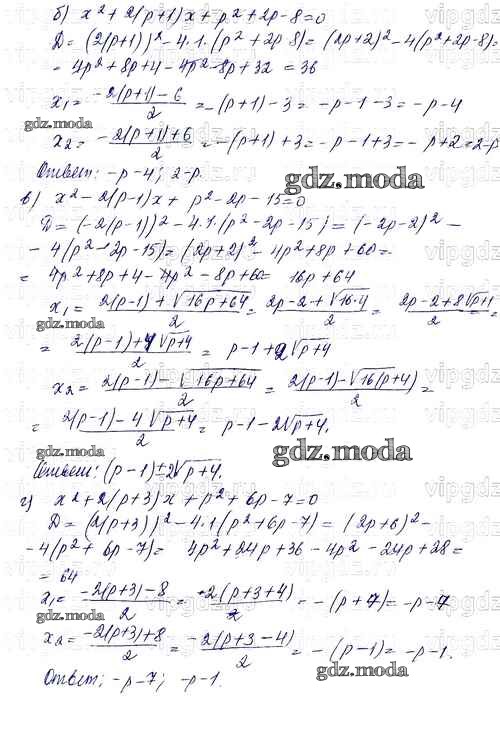 б) x² + 2(p+1)x + p² + 2p - 8 = 0
D = (2(p+1))² - 4·1·(p² + 2p - 8) = (2p+2)² - 4(p² + 2p - 8) =
= 4p² + 8p + 4 - 4p² - 8p + 32 = 36
x₁ = (-2(p+1) - 6)/2 = -(p+1) - 3 = -p - 1 - 3 = -p - 4
gdz.moda
x₂ = (-2(p+1) + 6)/2 = -(p+1) + 3 = -p - 1 + 3 = -p + 2 = 2-p
Ответ: -p-4; 2-p.
gdz.moda
в) x² - 2(p-1)x + p² - 2p - 15 = 0
D = (-2(p-1))² - 4·1·(p² - 2p - 15) = (-2p-2)² -
- 4(p² - 2p - 15) = (2p+2)² - 4p² + 8p + 60 =
= 4p² + 8p + 4 - 4p² - 8p + 60 = 16p + 64
x₁ = (2(p-1) + √(16p+64))/2 = (2p - 2 + √(16·4))/2 = (2p - 2 + 2√(p+1))/2 =
gdz.moda
= (2(p-1) + 4√(p+4))/2 = p - 1 + 2√(p+4)
x₂ = (2(p-1) - √(16p+64))/2 = (2(p-1) - √(16(p+4)))/2 =
= (2(p-1) - 4√(p+4))/2 = p - 1 - 2√(p+4).
gdz.moda
Ответ: (p-1) ± 2√(p+4).
г) x² + 2(p+3)x + p² + 6p - 7 = 0
D = (2(p+3))² - 4·1(p² + 6p - 7) = (2p+6)² -
- 4(p² + 6p - 7) = 4p² + 24p + 36 - 4p² - 24p + 28 =
= 64
x₁ = (-2(p+3) - 8)/2 = (-2(p+3+4))/2 = -(p+7) = -p-7
gdz.moda
x₂ = (-2(p+3) + 8)/2 = (-2(p+3-4))/2 = -(p-1) = -p-1.
gdz.moda
Ответ: -p-7; -p-1.